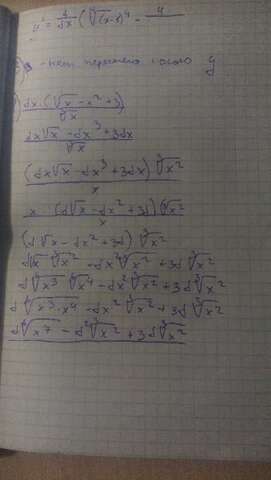 y' = d/dx (⁵√(x-3)⁴ - 4
- нет y
dx · (√x - x² + 3) / ³√x
dx√x - dx³ + 3dx / ³√x
(dx√x - dx³ + 3dx) ³√x² / x
x · (d√x - dx² + 3d) ³√x² / x
(d√x - dx² + 3d) ³√x²
d√x ³√x² - dx² ³√x² + 3d ³√x²
d ⁶√x³ ⁶√x⁴ - dx² ³√x² + 3d ³√x²
d ⁶√x³·x⁴ - dx² ³√x² + 3d ³√x²
d ⁶√x⁷ - d² ³√x² + 3d ³√x²